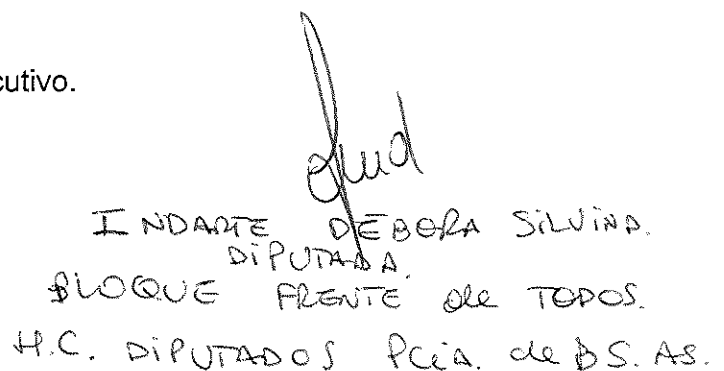 cutivo.
INDARTE DEBORA SILVINA.
DIPUTADA.
BLOQUE FRENTE de TODOS.
H.C. DIPUTADOS PCIA. de BS. AS.